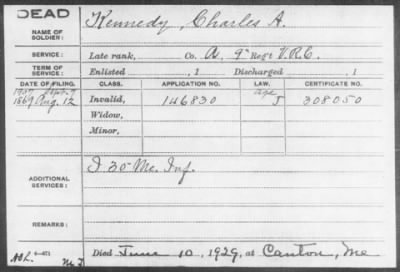 DEAD
NAME OF SOLDIER: Kennedy, Charles A.
SERVICE: Late rank, Co. A, 9" Regt V.R.C.
TERM OF SERVICE: Enlisted , 1 Discharged , 1
DATE OF FILING. CLASS. APPLICATION NO. LAW. CERTIFICATE NO.
1907 Sept. 7 age
1869 Aug. 12 Invalid, 146830 J 308050
Widow,
Minor,
ADDITIONAL SERVICES: I 30 Me. Inf.
REMARKS:
Died June 10, 1929, at Canton, Me